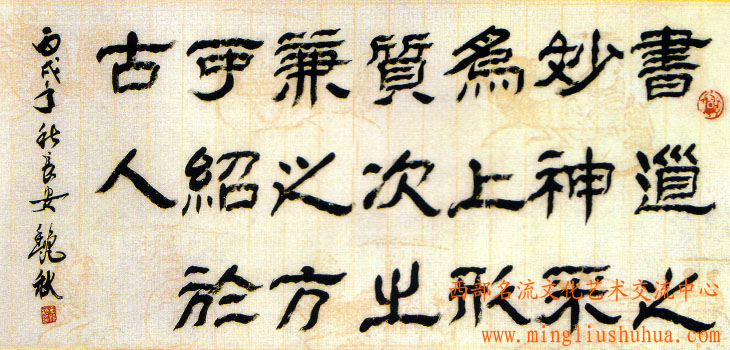 書道之
妙神采
為上形
質次之
兼之方
可紹於
古人
丙戌年秋长安魏秋
西部名流文化艺术交流中心
www.mingliushuhua.com